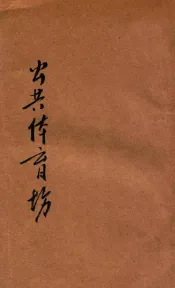 公共体育场